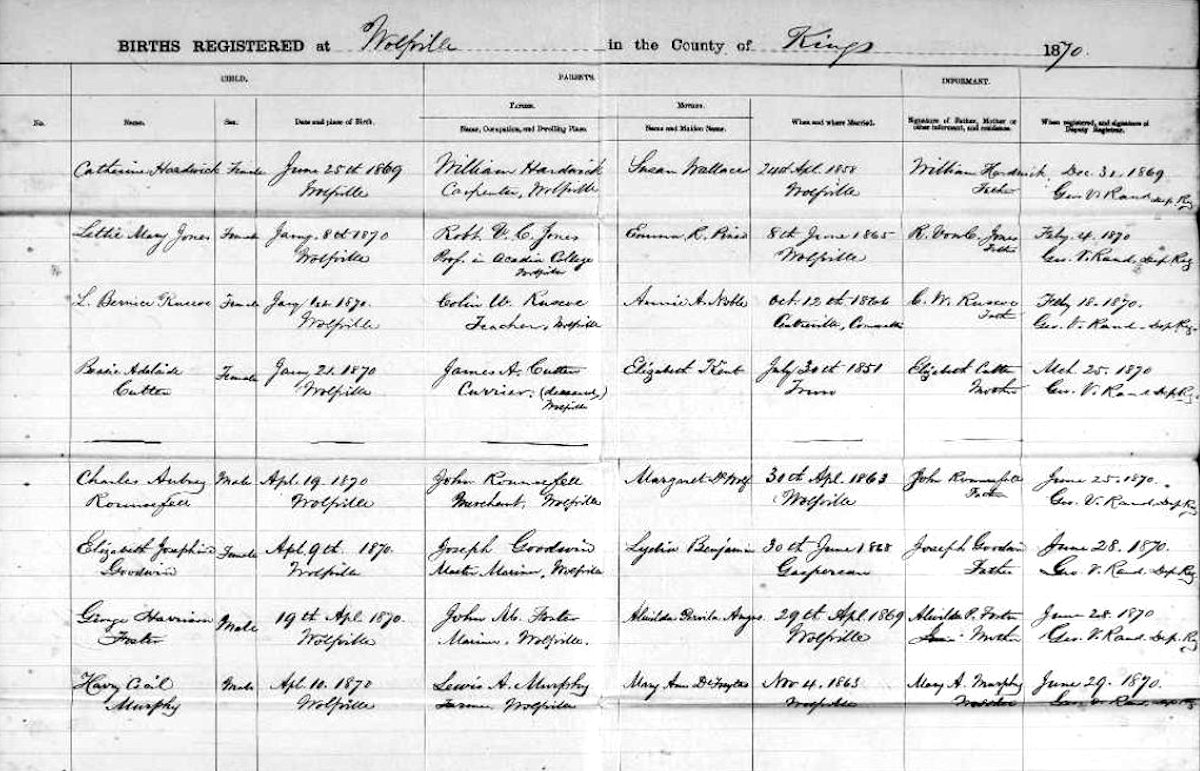 BIRTHS REGISTERED at Wolfville in the County of Kings 1870.
CHILD. PARENTS. INFORMANT.
FATHER. MOTHER.
No. Name. Sex. Date and place of Birth. Name, Occupation, and Dwelling Place. Name and Maiden Name. When and where Married. Signature of Father, Mother or other informant, and residence. When registered, and signature of Deputy Registrar.
Catherine Hardwick Female June 25th 1869 William Hardwick Susan Wallace Apl. 1858 William Hardwick Dec. 31. 1869
Wolfville Carpenter, Wolfville Wolfville Father Geo. V. Rand Dep. Reg
Lettie Mary Jones Female Jany. 8th 1870 Robt. V. C. Jones Emma R. 8th June 1865 R. VonC. Jones Feby. 4. 1870
Wolfville Prof. in Acadia College Wolfville Father Geo. V. Rand, Dep. Reg
Wolfville
L. Bernice Ruscoe Female Jany 1870. Colin W. Ruscoe Annie A. Noble Oct. 12th 1866 C. W. Ruscoe Feby 18. 1870.
Wolfville Teacher, Wolfville Father Geo. V. Rand. Dep Reg
Bessie Adelaide Female Jany 21. 1870 James A. Cutten Elizabeth Kent July 30th 1851 Elizabeth Cutten Mch. 25. 1870
Cutten Wolfville Currier. (deceased) Truro Mother Geo. V. Rand Dep. Reg
Wolfville
Charles Aubrey Male Apl. 19. 1870 John Rounsefell Margaret DeWolf 30th Apl. 1863 John Rounsefell June 25. 1870.
Rounsefell Wolfville Merchant, Wolfville Wolfville Father Geo. V. Rand. Dep Reg
Elizabeth Josephine Female Apl. 9th. 1870. Joseph Goodwin Lydia Benjamin 30th June 1868 Joseph Goodwin June 28. 1870.
Goodwin Wolfville Master Mariner, Wolfville Gaspereau Father Geo. V. Rand. Dep Reg
George Harrison Male 19th Apl. 1870. John M. Foster 29th Apl. 1869 Alwilda P. Foster June 28. 1870
Foster Wolfville Mariner, Wolfville. Wolfville Mother Geo. V. Rand. Dep. Reg
Harry Cecil Male Apl. 10. 1870 Lewis A. Murphy Mary Ann Nov 4. 1863 Mary A. Murphy June 29. 1870.
Murphy Wolfville Farmer, Wolfville Wolfville Mother Geo. V. Rand. Dep Reg